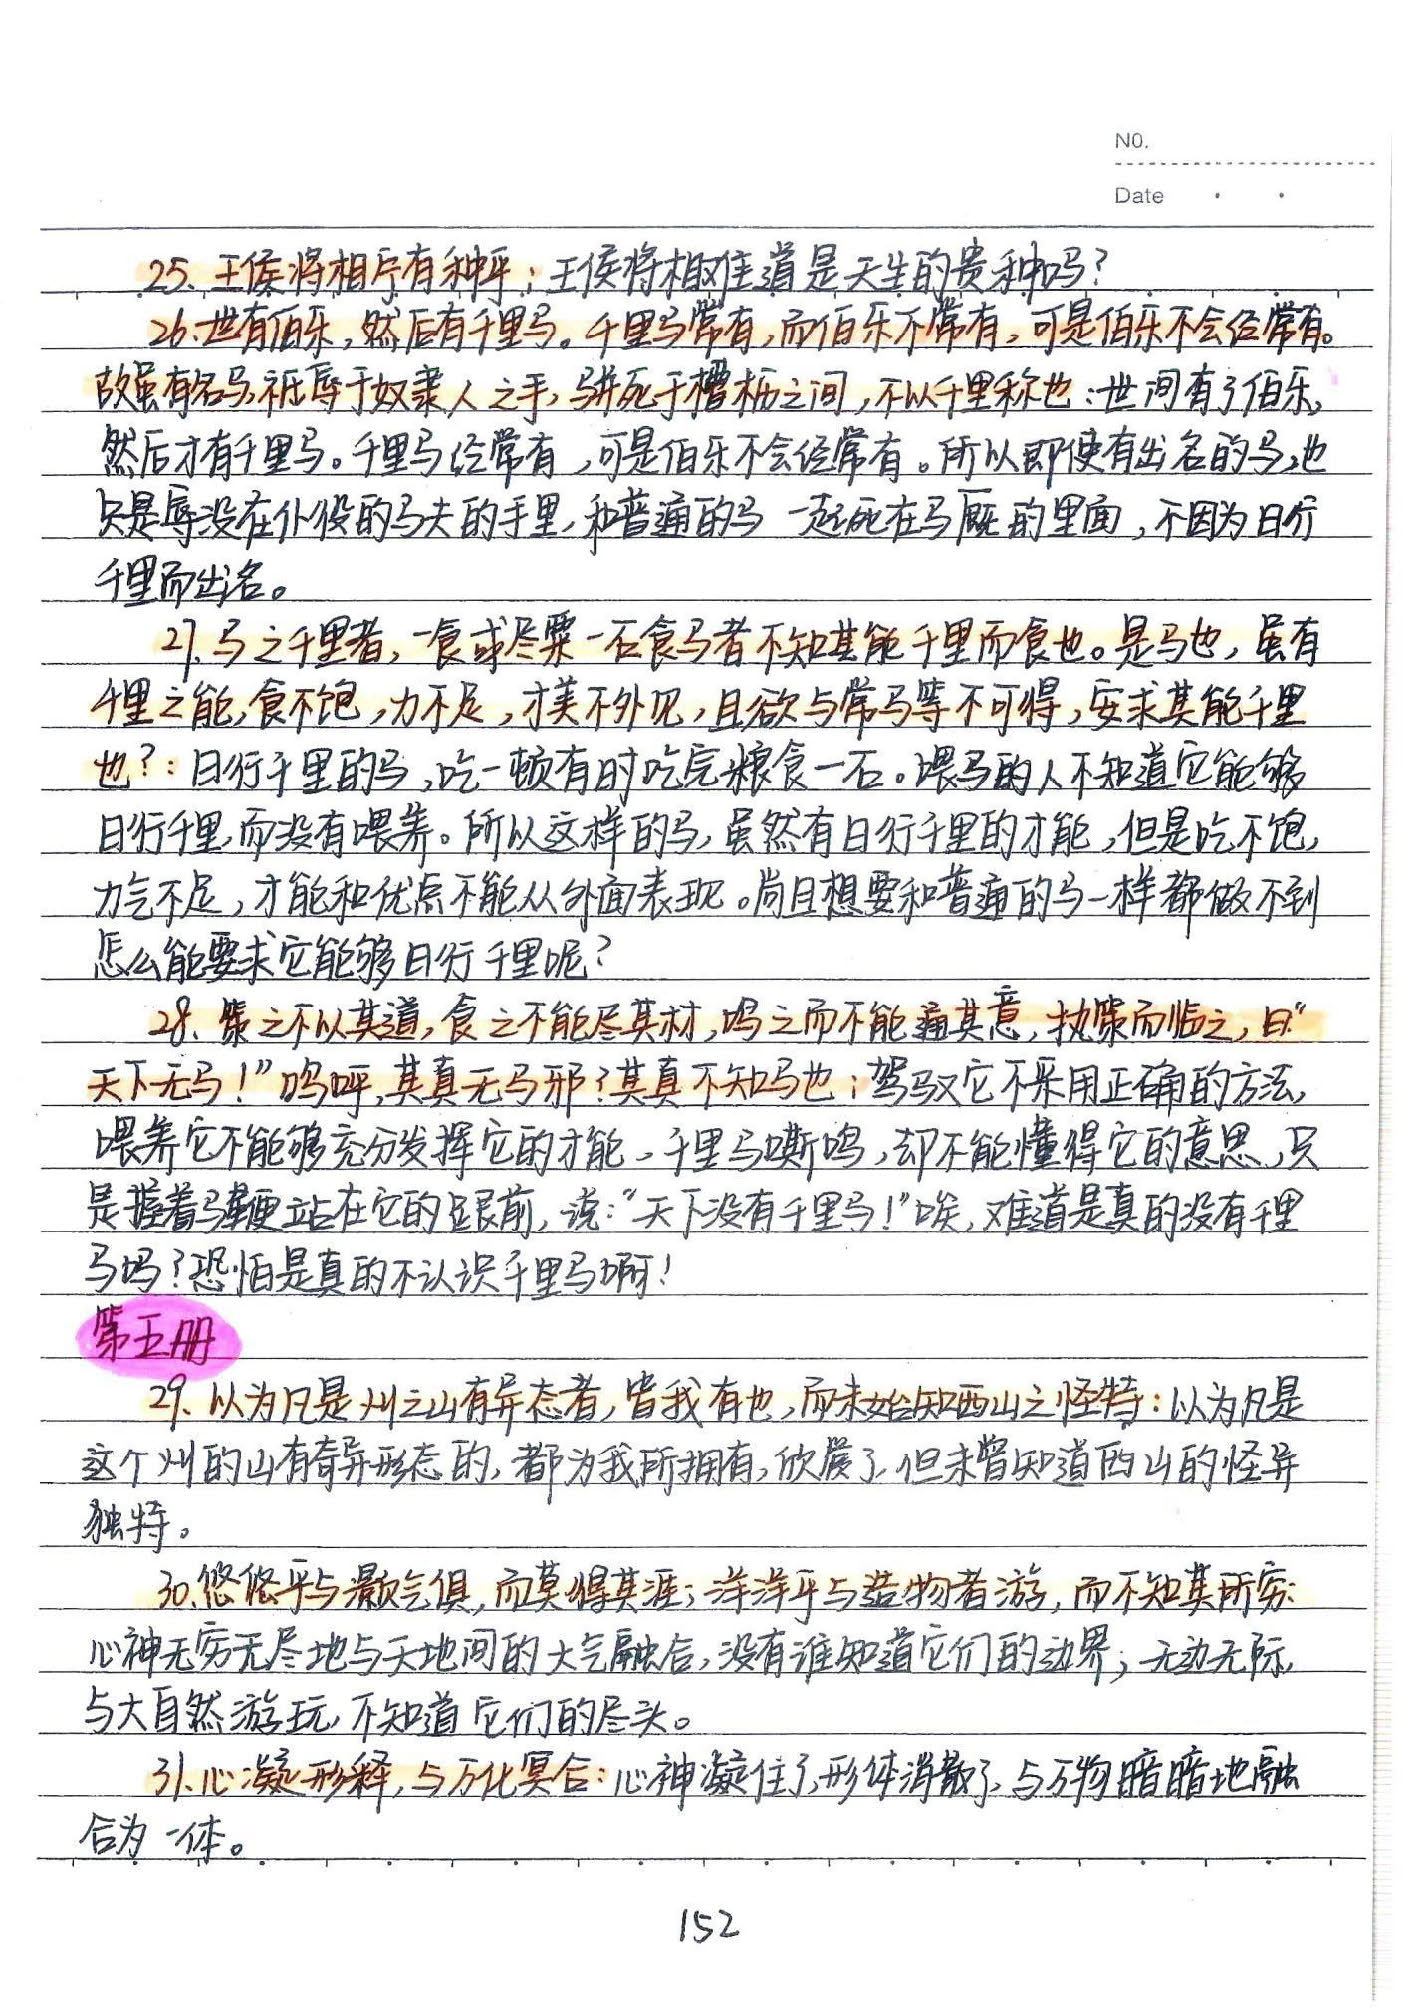 NO.
Date
25、王侯将相宁有种乎：王侯将相难道是天生的贵种吗？
26、世有伯乐，然后有千里马。千里马常有，而伯乐不常有，可是伯乐不会经常有。
故虽有名马，祗辱于奴隶人之手，骈死于槽枥之间，不以千里称也：世间有了伯乐，
然后才有千里马。千里马经常有，可是伯乐不会经常有。所以即使有出名的马，也
只是辱没在仆役的马夫的手里，和普通的马一起死在马厩的里面，不因为日行
千里而出名。
27、马之千里者，一食或尽粟一石食马者不知其能千里而食也。是马也，虽有
千里之能，食不饱，力不足，才美不外见，且欲与常马等不可得，安求其能千里
也？：日行千里的马，吃一顿有时吃完粮食一石。喂马的人不知道它能够
日行千里，而没有喂养。所以这样的马，虽然有日行千里的才能，但是吃不饱，
力气不足，才能和优点不能从外面表现。尚且想要和普通的马一样都做不到
怎么能要求它能够日行千里呢？
28、策之不以其道，食之不能尽其材，鸣之而不能通其意，执策而临之，曰“
天下无马！”呜呼，其真无马邪？其真不知马也：驾驭它不采用正确的方法，
喂养它不能够充分发挥它的才能，千里马嘶鸣，却不能懂得它的意思，只
是握着马鞭站在它的跟前，说：“天下没有千里马！”唉，难道是真的没有千里
马吗？恐怕是真的不认识千里马啊！
第五册
29、以为凡是州之山有异态者，皆我有也，而未始知西山之怪特：以为凡是
这个州的山有奇异形态的，都为我所拥有，欣赏了，但未曾知道西山的怪异
独特。
30、悠悠乎与颢气俱，而莫得其涯；洋洋乎与造物者游，而不知其所穷：
心神无穷无尽地与天地间的大气融合，没有谁知道它们的边界；无边无际，
与大自然游玩，不知道它们的尽头。
31、心凝形释，与万化冥合：心神凝住了，形体消散了，与万物暗暗地融
合为一体。
152